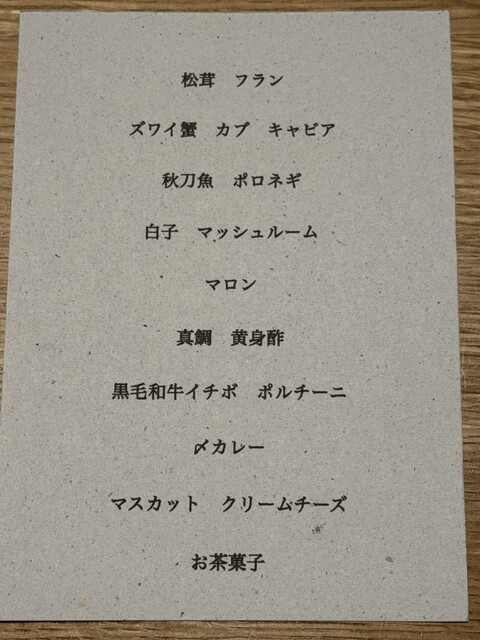 松茸　フラン
ズワイ蟹　カブ　キャビア
秋刀魚　ポロネギ
白子　マッシュルーム
マロン
真鯛　黄身酢
黒毛和牛イチボ　ポルチーニ
〆カレー
マスカット　クリームチーズ
お茶菓子